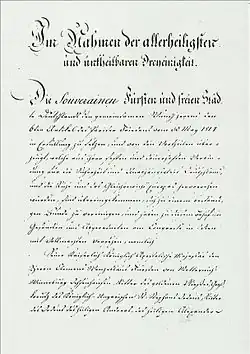 Im Nahmen der allerheiligsten
und untheilbaren Dreieinigkeit.
Die Souverainen Fürsten und freien Städ-
te Deutschlands den gemeinsamen Wunsch hegend, den
6ten Artikel des Pariser Friedens vom 30 May 1814
in Erfüllung zu setzen, und von den Vortheilen über-
zeugt, welche aus ihrer festen und dauerhaften Verbin-
dung für die Sicherheit und Unabhängigkeit Deutschlands,
und die Ruhe und das Gleichgewicht Europas hervorgehen
würden, sind übereingekommen, sich zu einem beständi-
gen Bunde zu vereinigen, und haben zu diesem Behuf ihre
Gesandten und Abgeordneten am Congresse in Wien
mit Vollmachten versehen, nämlich
Seine Kaiserlich Königlich Apostolische Majestät den
Herrn Clemens Wenzeslaus Fürsten von Metternich
Winneburg Ochsenhausen, Ritter des goldenen Vließes, Groß-
kreutz des Königlich Ungarischen St. Stephans Ordens, Ritter
des Ordens des heiligen Andreas, des heiligen Alexander